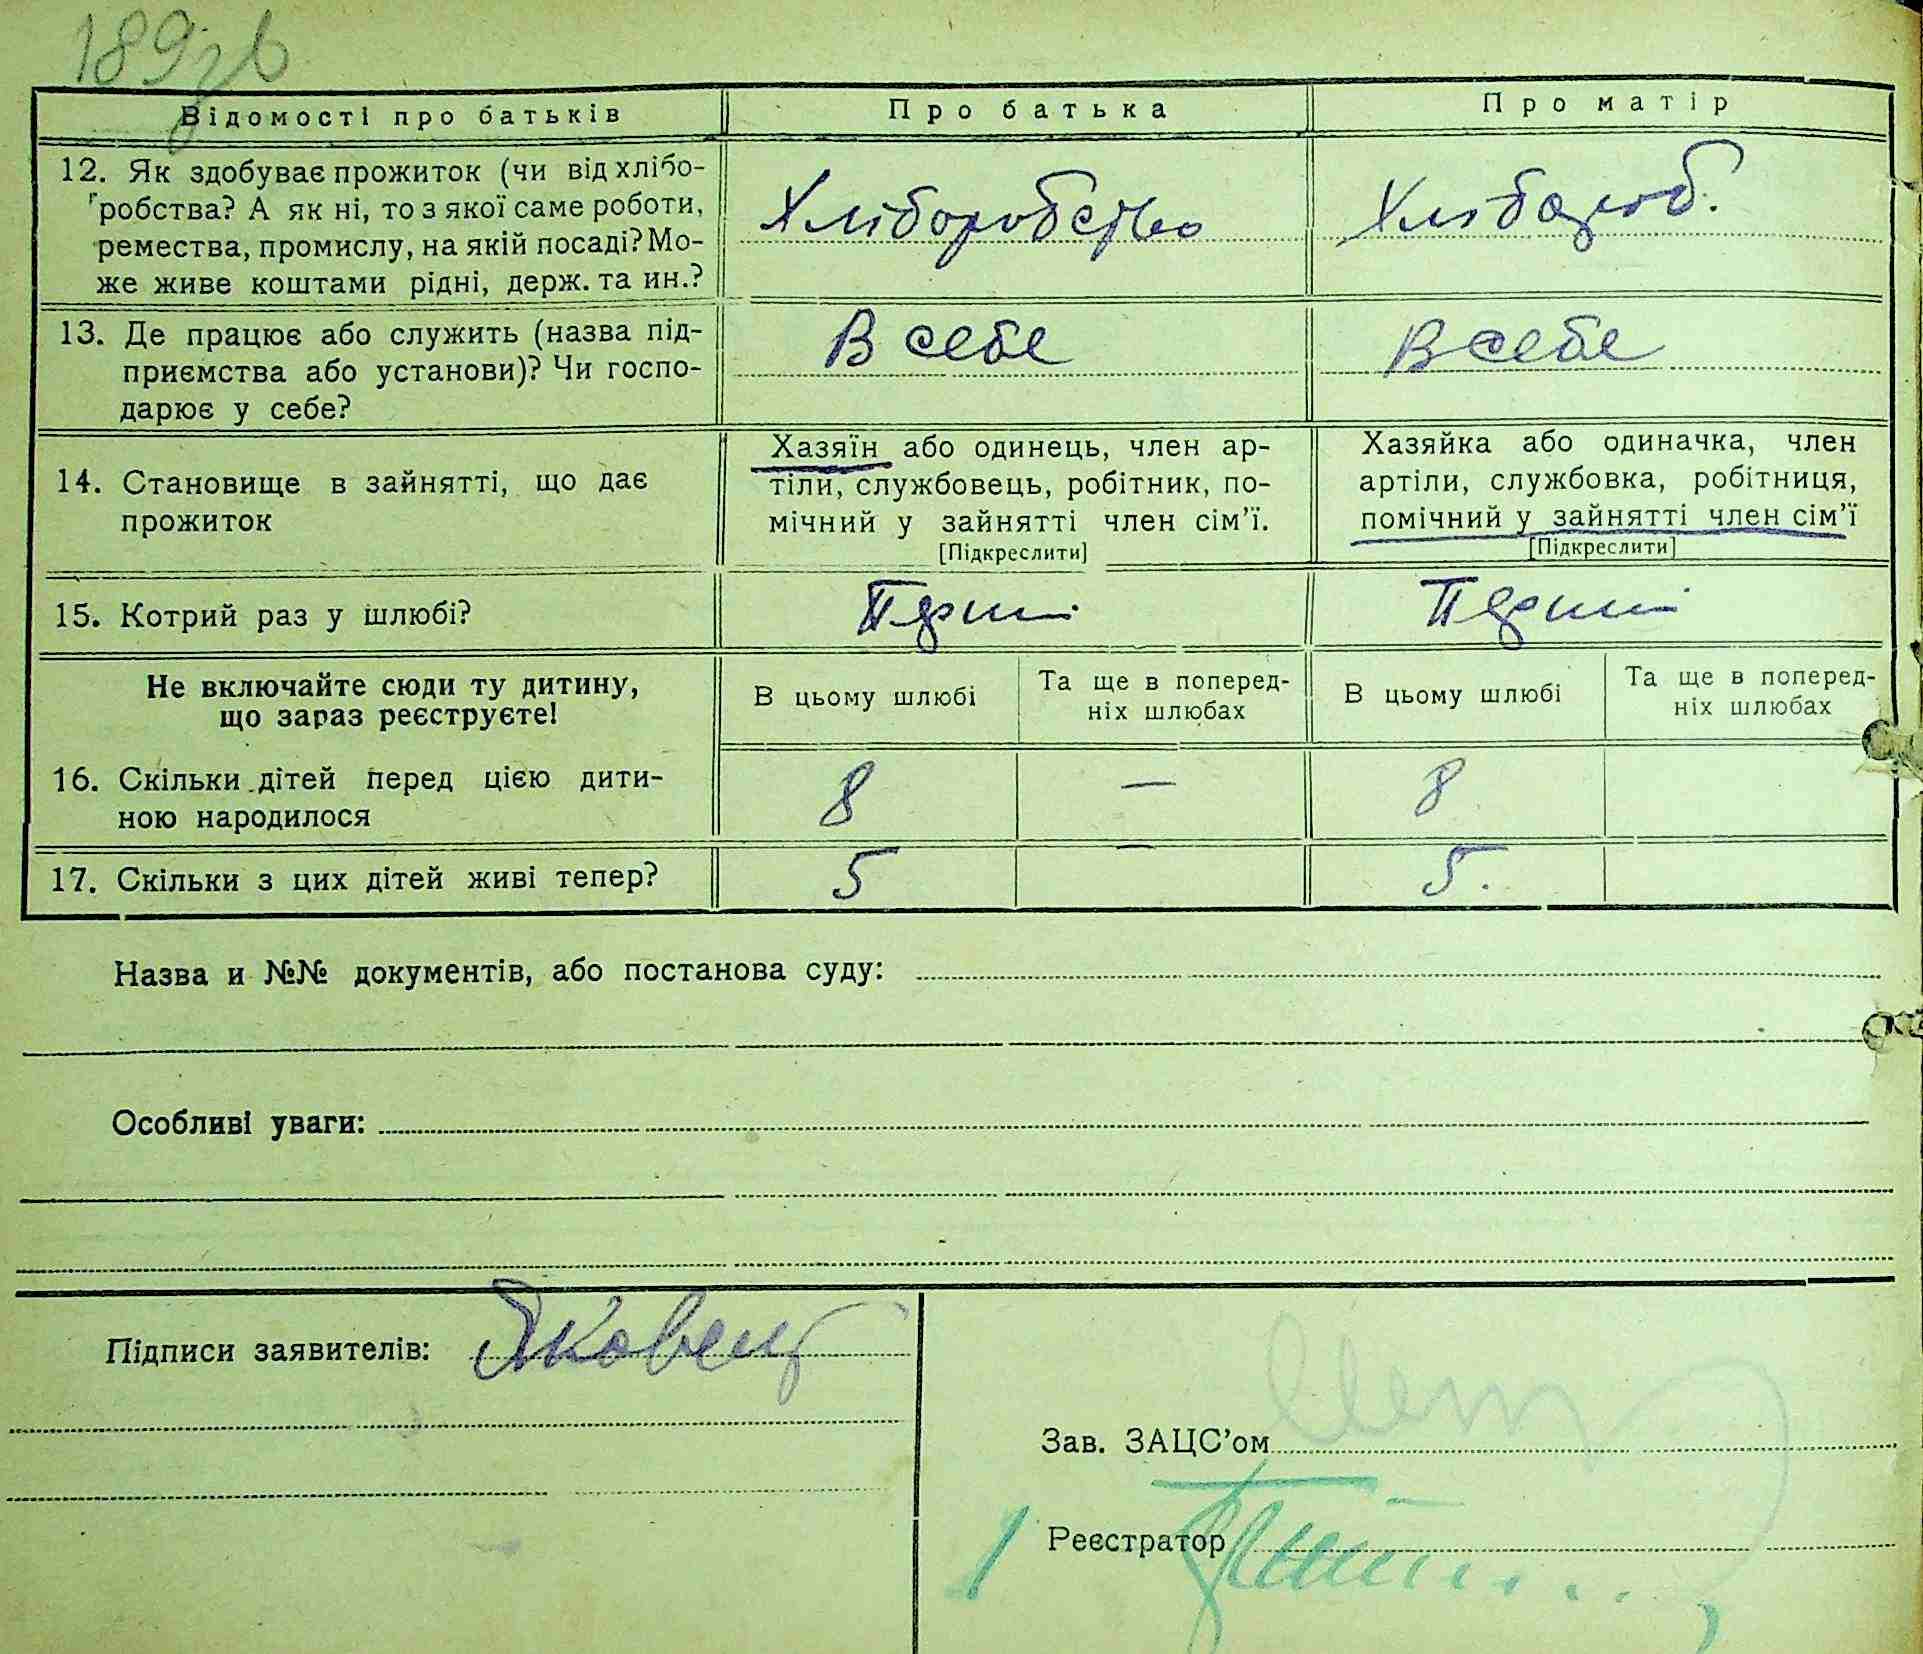 189зв
Відомості про батьків
Про батька
Про матір
12. Як здобуває прожиток (чи від хлібо-
робства? А як ні, то з якої саме роботи,
ремества, промислу, на якій посаді? Мо-
же живе коштами рідні, держ. та ин.?
Хліборобство
Хлібороб.
13. Де працює або служить (назва під-
приємства або установи)? Чи госпо-
дарює у себе?
В себе
В себе
14. Становище в зайнятті, що дає
прожиток
Хазяїн або одинець, член ар-
тіли, службовець, робітник, по-
мічний у зайнятті член сім'ї.
[Підкреслити]
Хазяйка або одиначка, член
артіли, службовка, робітниця,
помічний у зайнятті член сім'ї
[Підкреслити]
15. Котрий раз у шлюбі?
Перший
Перший
Не включайте сюди ту дитину,
що зараз реєструєте!
В цьому шлюбі
Та ще в поперед-
ніх шлюбах
В цьому шлюбі
Та ще в поперед-
ніх шлюбах
16. Скільки дітей перед цією дити-
ною народилося
8
—
8
17. Скільки з цих дітей живі тепер?
5
—
5.
Назва и №№ документів, або постанова суду:
Особливі уваги:
Підписи заявителів: Яковець
Зав. ЗАЦС'ом
Реєстратор